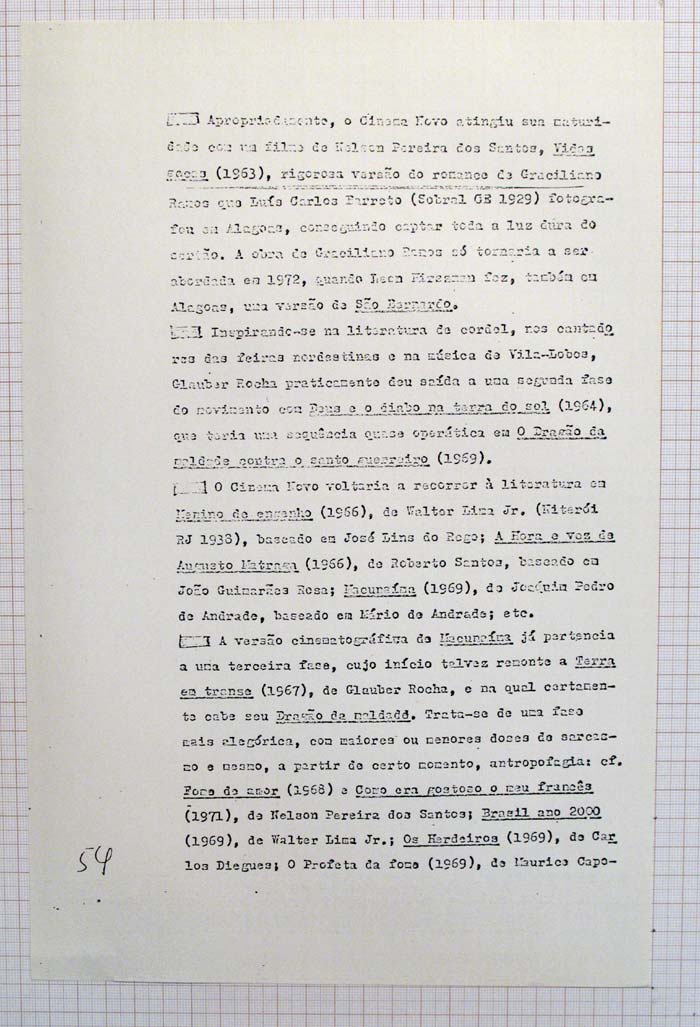 Apropriadamente, o Cinema Novo atingiu sua maturi-
dade com um filme de Nelson Pereira dos Santos, Vidas
secas (1963), rigorosa versão do romance de Graciliano
Ramos que Luís Carlos Barreto (Sobral CE 1929) fotogra-
fou em Alagoas, conseguindo captar toda a luz dura do
sertão. A obra de Graciliano Ramos só tornaria a ser
abordada em 1972, quando Leon Hirszman fez, também em
Alagoas, uma versão de São Bernardo.
Inspirando-se na literatura de cordel, nos cantado
res das feiras nordestinas e na música de Vila-Lobos,
Glauber Rocha praticamente deu saída a uma segunda fase
do movimento com Deus e o diabo na terra do sol (1964),
que teria uma sequência quase operática em O Dragão da
maldade contra o santo guerreiro (1969).
O Cinema Novo voltaria a recorrer à literatura em
Menino de engenho (1966), de Walter Lima Jr. (Niterói
RJ 1938), baseado em José Lins do Rego; A Hora e vez de
Augusto Matraga (1966), de Roberto Santos, baseado em
João Guimarães Rosa; Macunaíma (1969), de Joaquim Pedro
de Andrade, baseado em Mário de Andrade; etc.
A versão cinematográfica de Macunaíma já pertencia
a uma terceira fase, cujo início talvez remonte a Terra
em transe (1967), de Glauber Rocha, e na qual certamen-
te cabe seu Dragão da maldadd. Trata-se de uma fase
mais alegórica, com maiores ou menores doses de sarcas-
mo e mesmo, a partir de certo momento, antropofagia: cf.
Fome de amor (1968) e Como era gostoso o meu francês
(1971), de Nelson Pereira dos Santos; Brasil ano 2000
(1969), de Walter Lima Jr.; Os Herdeiros (1969), de Car
los Diegues; O Profeta da fome (1969), de Maurice Capo-
54